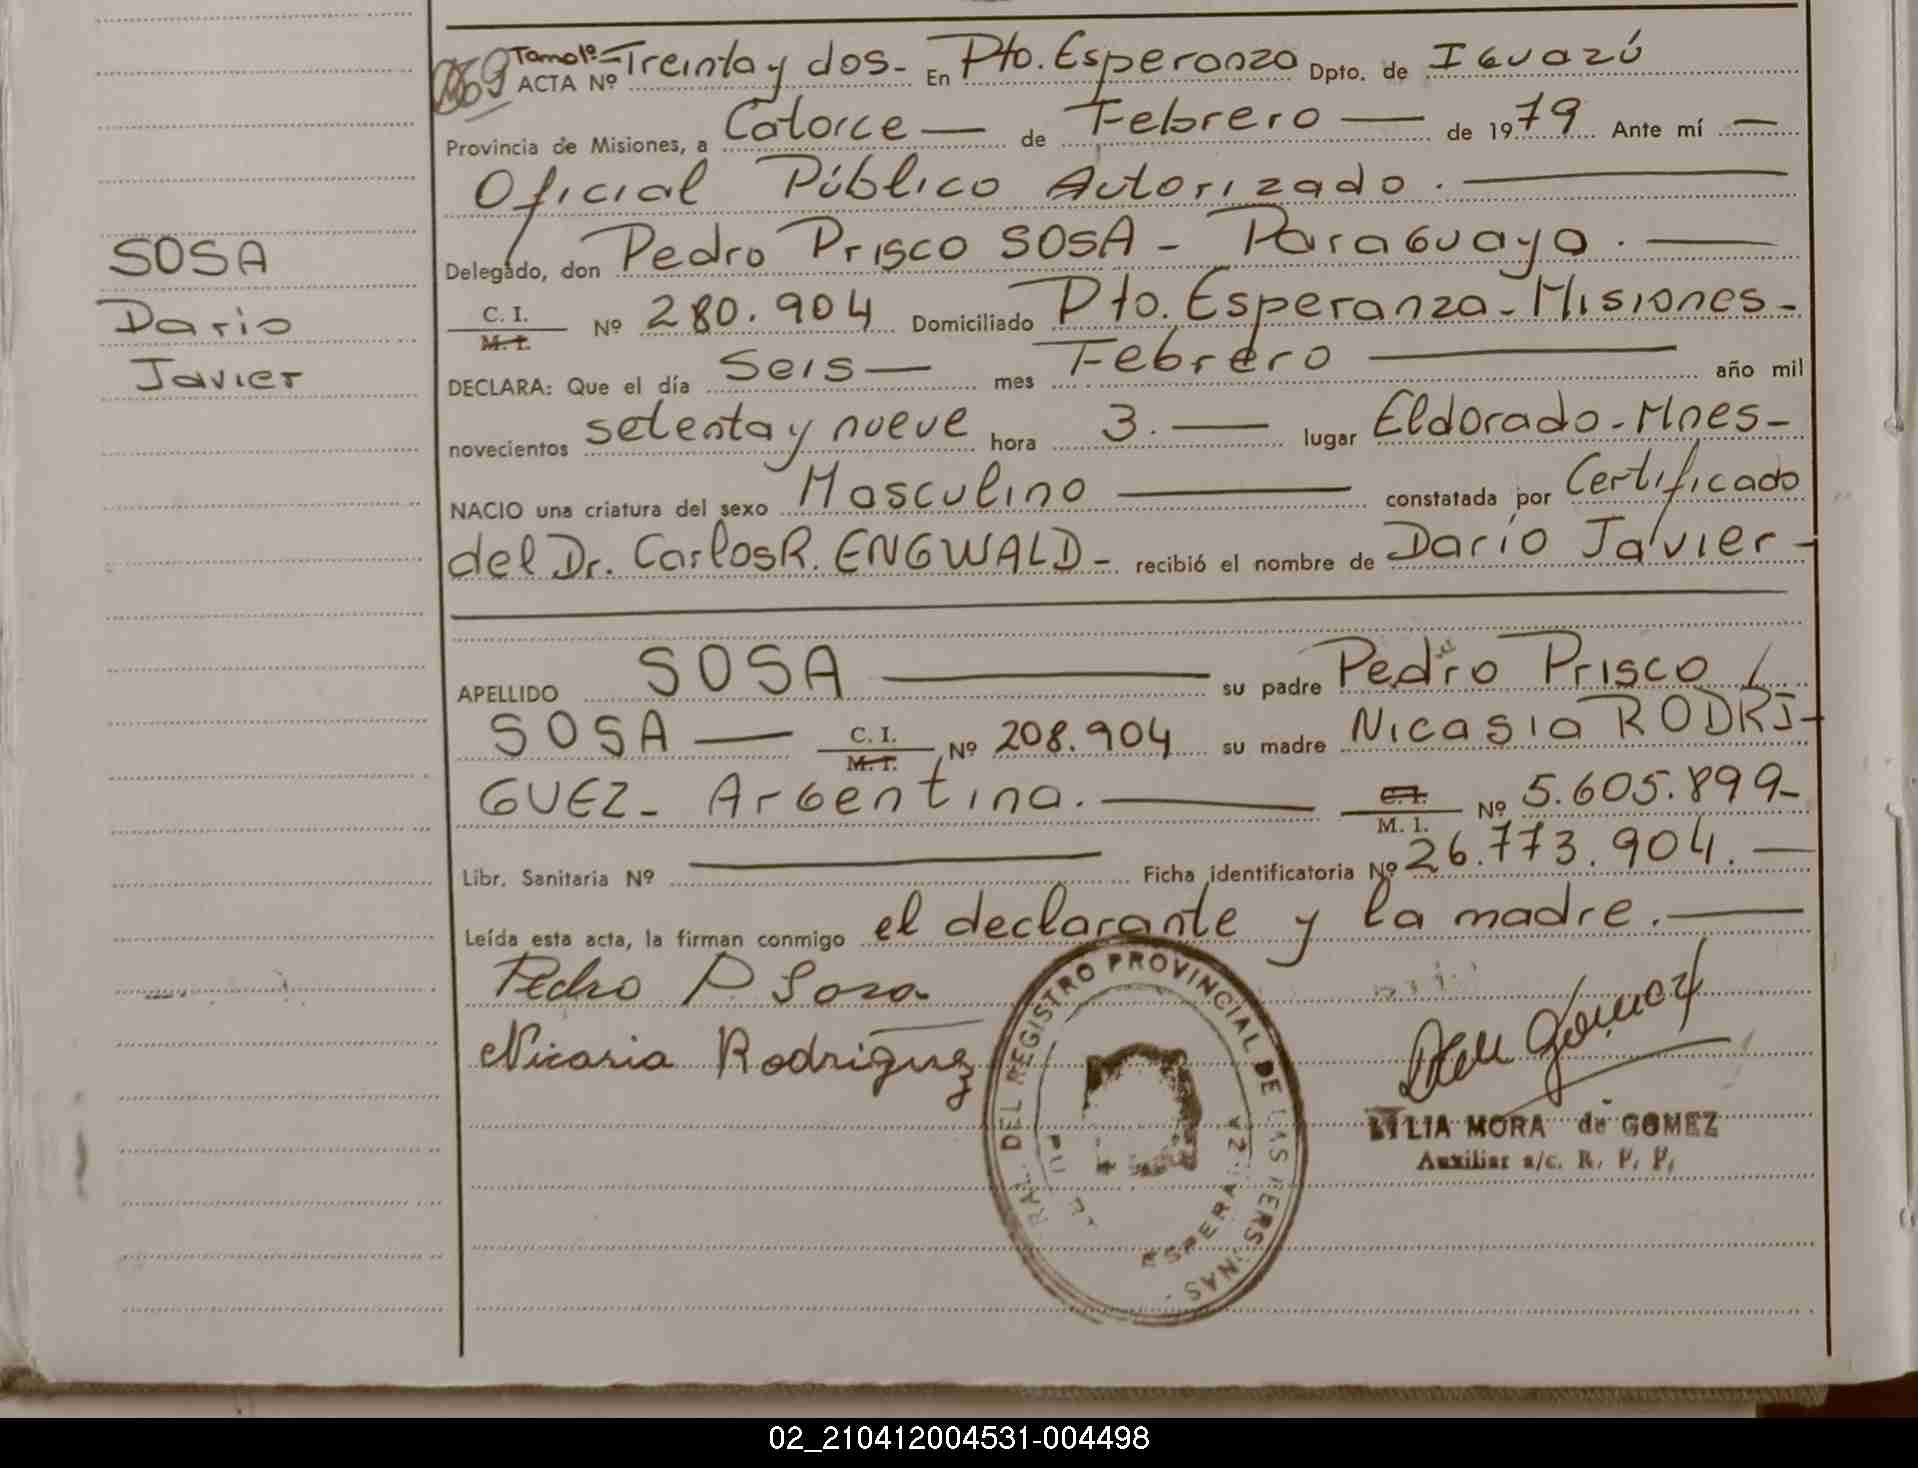 Tomo 1º - Treinta y dos -
ACTA Nº En Pto. Esperanza Dpto. de Iguazú
Provincia de Misiones, a Catorce — de Febrero — de 1979 Ante mí —
Oficial Público Autorizado. —
Delegado, don Pedro Prisco SOSA - Paraguayo. —
C. I.
M. I. Nº 280.904 Domiciliado Pto. Esperanza - Misiones -
DECLARA: Que el día Seis — mes Febrero — año mil
novecientos setenta y nueve hora 3. — lugar Eldorado - Mnes -
NACIO una criatura del sexo Masculino — constatada por Certificado
del Dr. Carlos R. ENGWALD - recibió el nombre de Darío Javier -
APELLIDO SOSA — su padre Pedro Prisco /
SOSA — C. I.
M. I. Nº 208.904 su madre Nicasia RODRI-
GUEZ - Argentina. — C. I.
M. I. Nº 5.605.899 -
Libr. Sanitaria Nº — Ficha identificatoria Nº 26.773.904. —
Leída esta acta, la firman conmigo el declarante y la madre. —
Pedro P. Sosa
Nicasia Rodriguez
Gómez
LILIA MORA de GOMEZ
Auxiliar a/c. R. P. P.
DEL REGISTRO PROVINCIAL DE LAS PERSONAS
SOSA
Dario
Javier
02_210412004531-004498